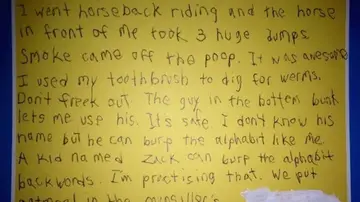 I went horseback riding and the horse
in front of me took 3 huge dumps
Smoke came off the poop. It was awesome
I used my toothbrush to dig for werms.
Dont freek out The guy in the bottem bunk
lets me use his. It's safe I don't know his
name but he can burp the alphabit like me
A kid named Zack can burp the alphabit
backwords. I'm practising that. We put
in the